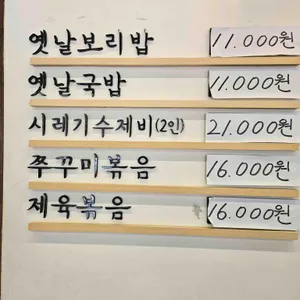 옛날보리밥 11.000원
옛날국밥 11.000원
시레기수제비(2인) 21.000원
쭈꾸미볶음 16.000원
제육볶음 16.000원